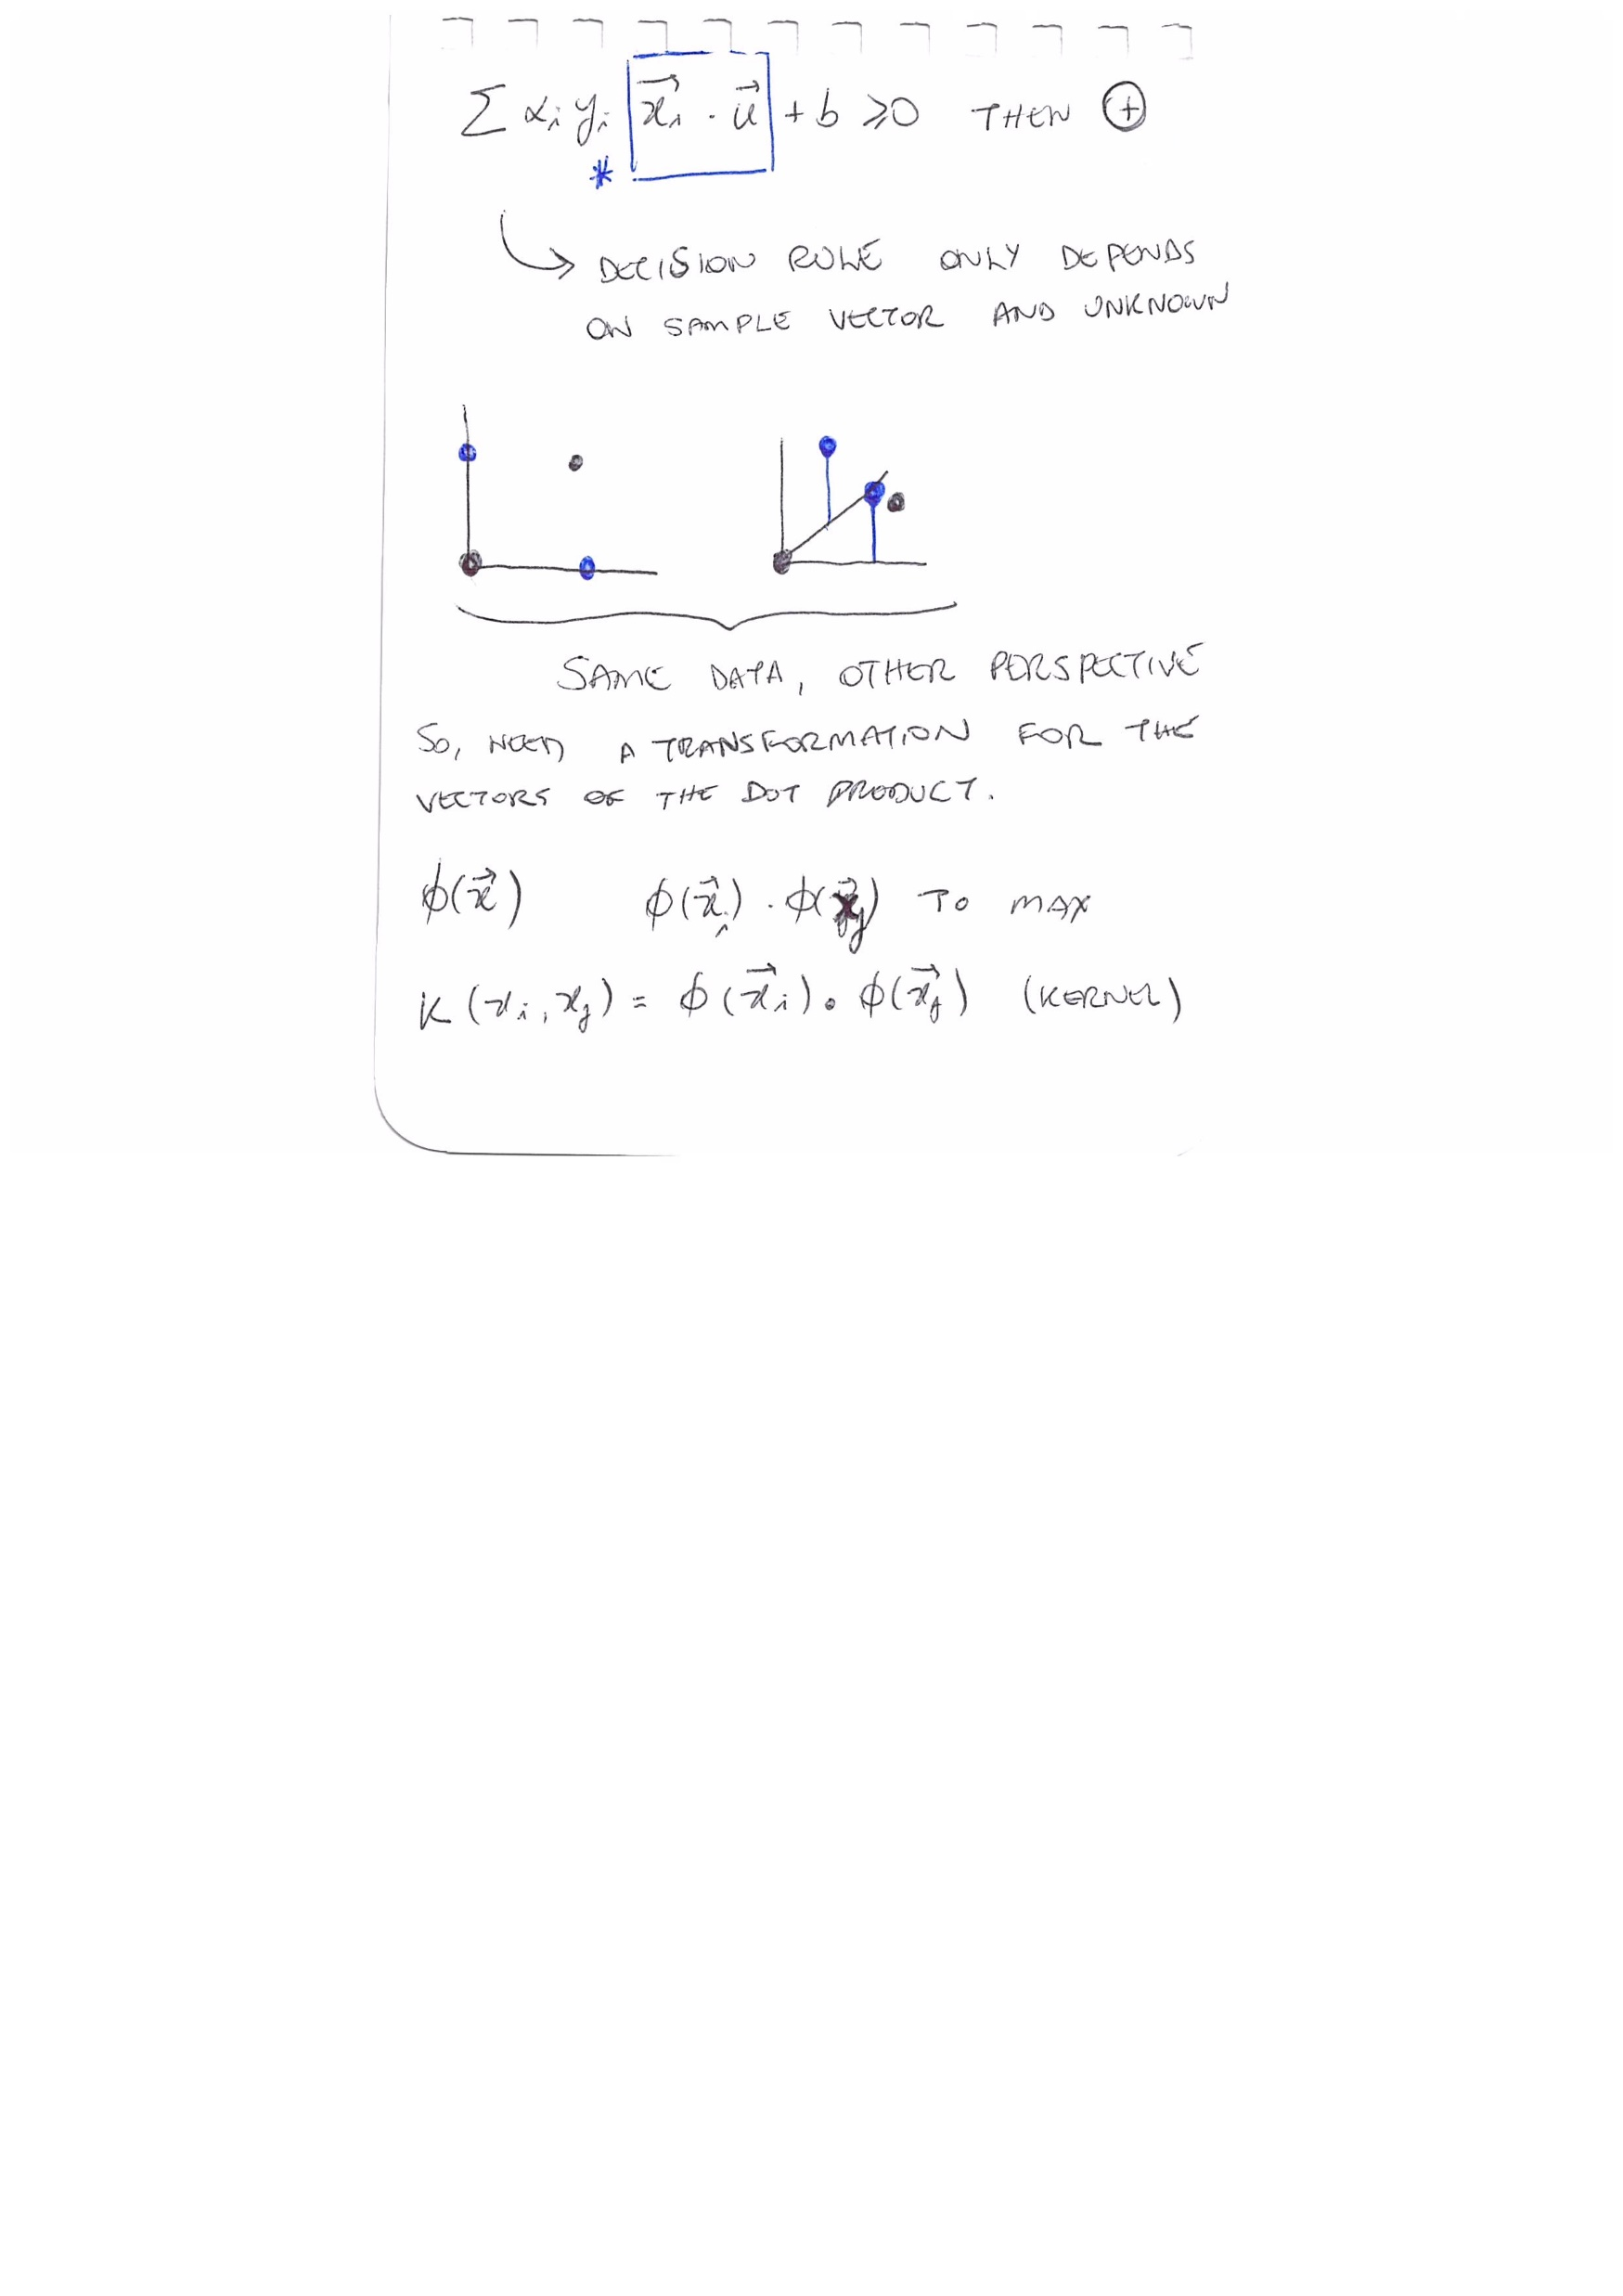 ∑ αᵢ yᵢ x⃗ᵢ · u⃗ + b ⩾ 0 THEN ⊕
*
DECISION RULE ONLY DEPENDS
ON SAMPLE VECTOR AND UNKNOWN
SAME DATA, OTHER PERSPECTIVE
SO, NEED A TRANSFORMATION FOR THE
VECTORS OF THE DOT PRODUCT.
ϕ(x⃗) ϕ(x⃗ᵢ) · ϕ(x⃗ⱼ) TO MAX
K (xᵢ, xⱼ) = ϕ(x⃗ᵢ) • ϕ(x⃗ⱼ) (KERNEL)